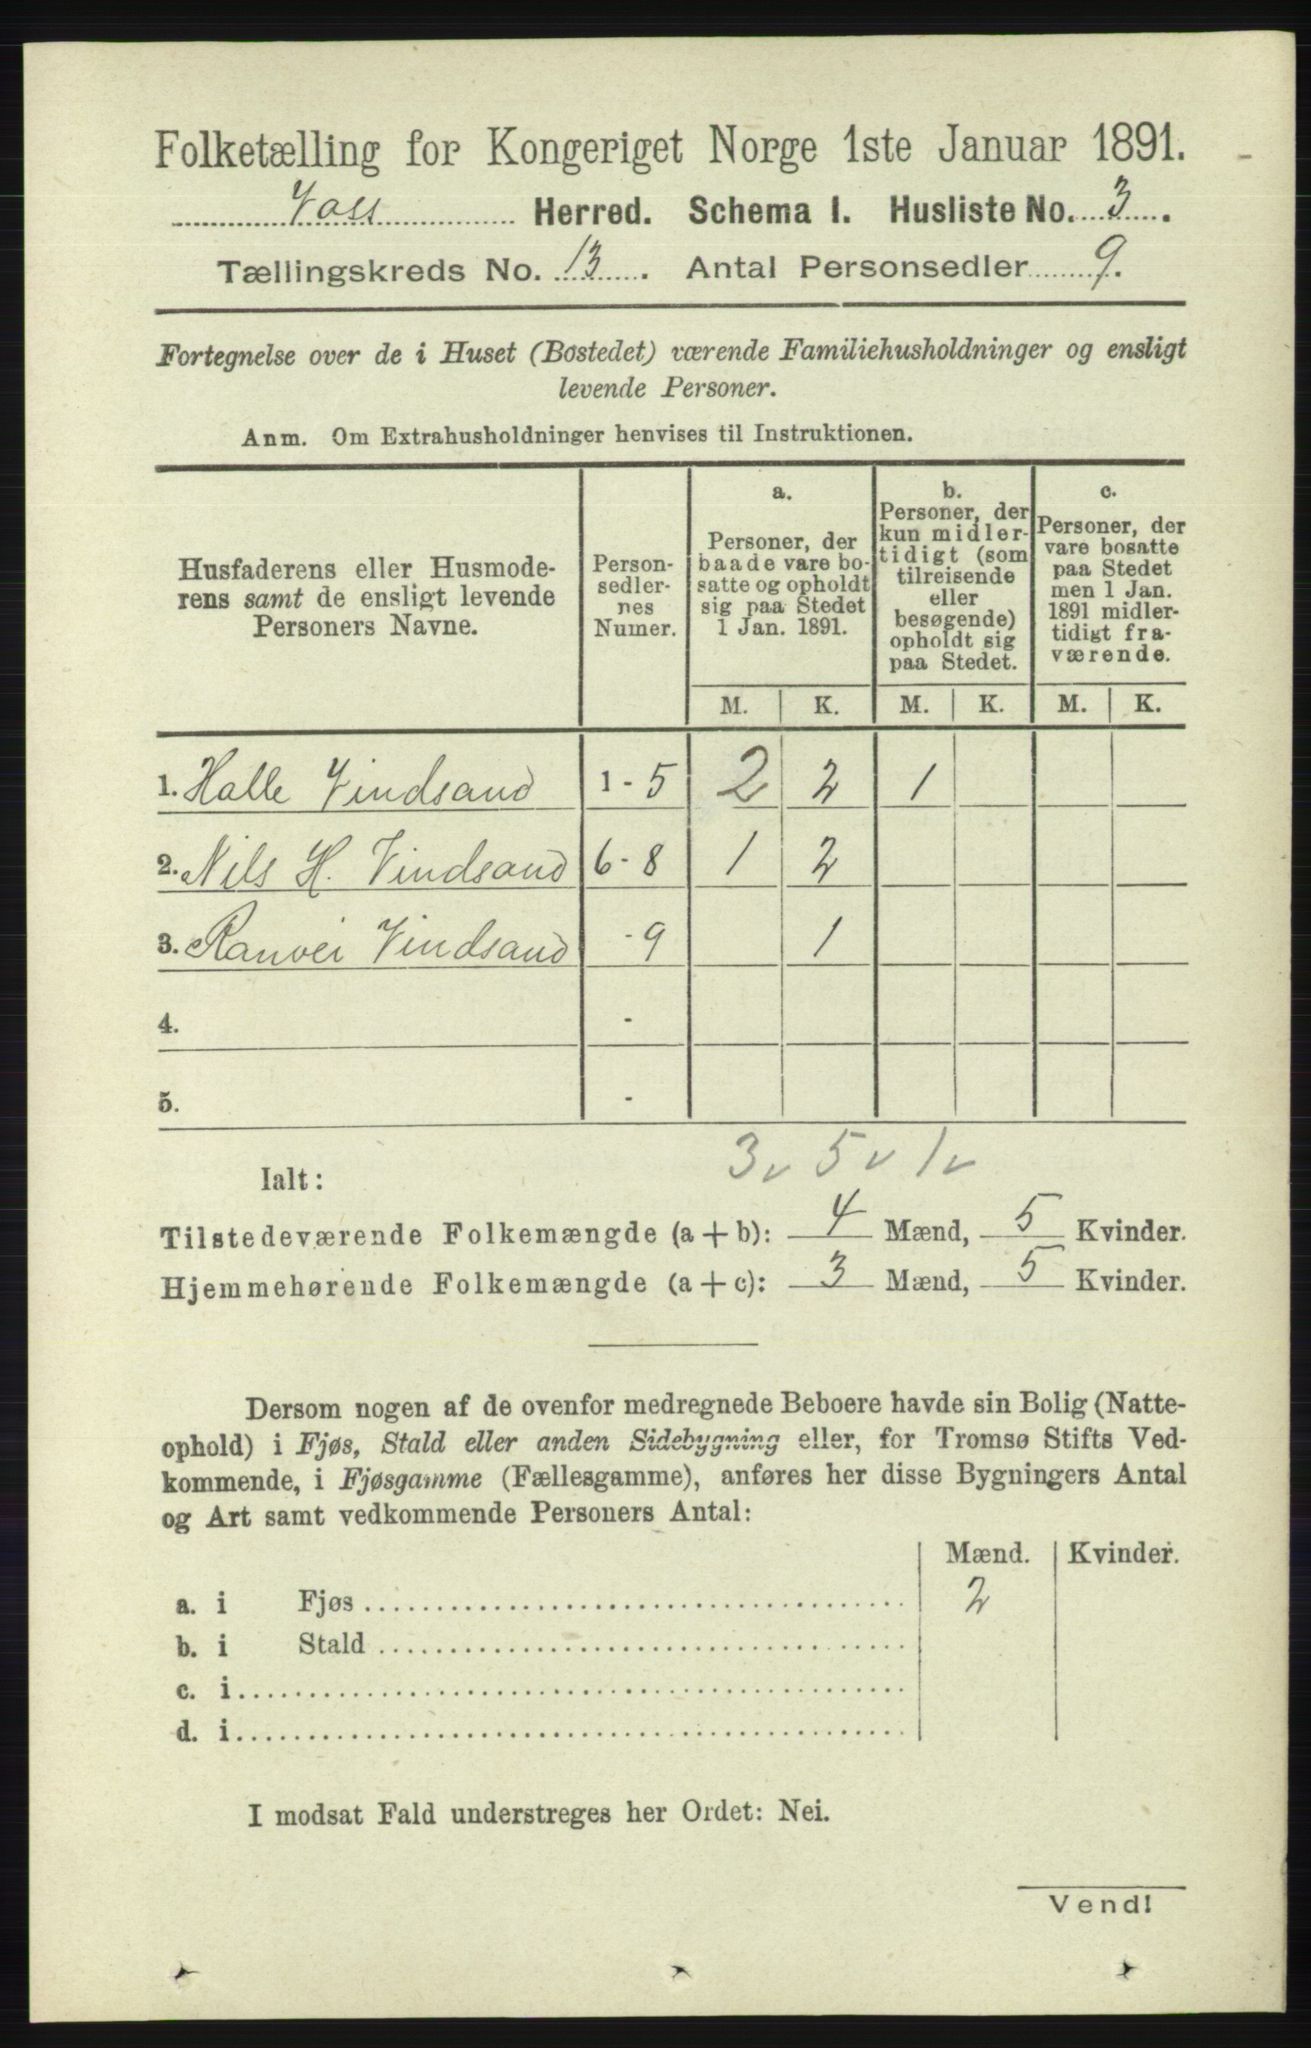 Folketælling for Kongeriget Norge 1ste Januar 1891.
Voss Herred. Schema I. Husliste No. 3.
Tællingskreds No. 13. Antal Personsedler 9.
Fortegnelse over de i Huset (Bostedet) værende Familiehusholdninger og ensligt
levende Personer.
Anm. Om Extrahusholdninger henvises til Instruktionen.
Husfaderens eller Husmode-
rens samt de ensligt levende
Personers Navne.
Person-
sedler-
nes
Numer.
a.
Personer, der
baade vare bo-
satte og opholdt
sig paa Stedet
1 Jan. 1891.
b.
Personer, der
kun midler-
tidigt (som
tilreisende
eller
besøgende)
opholdt sig
paa Stedet.
c.
Personer, der
vare bosatte
paa Stedet
men 1 Jan.
1891 midler-
tidigt fra-
værende.
M. K. M. K. M. K.
1. Halle Vindsand 1 - 5 2 2 1
2. Nils H. Vindsand 6 - 8 1 2
3. Ranvei Vindsand - 9 1
4. -
5. -
3v 5v 1v
Ialt:
Tilstedeværende Folkemængde (a + b): 4 Mænd, 5 Kvinder.
Hjemmehørende Folkemængde (a + c): 3 Mænd, 5 Kvinder.
Dersom nogen af de ovenfor medregnede Beboere havde sin Bolig (Natte-
ophold) i Fjøs, Stald eller anden Sidebygning eller, for Tromsø Stifts Ved-
kommende, i Fjøsgamme (Fællesgamme), anføres her disse Bygningers Antal
og Art samt vedkommende Personers Antal:
Mænd. Kvinder.
a. i Fjøs 2
b. i Stald
c. i
d. i
I modsat Fald understreges her Ordet: Nei.
Vend!